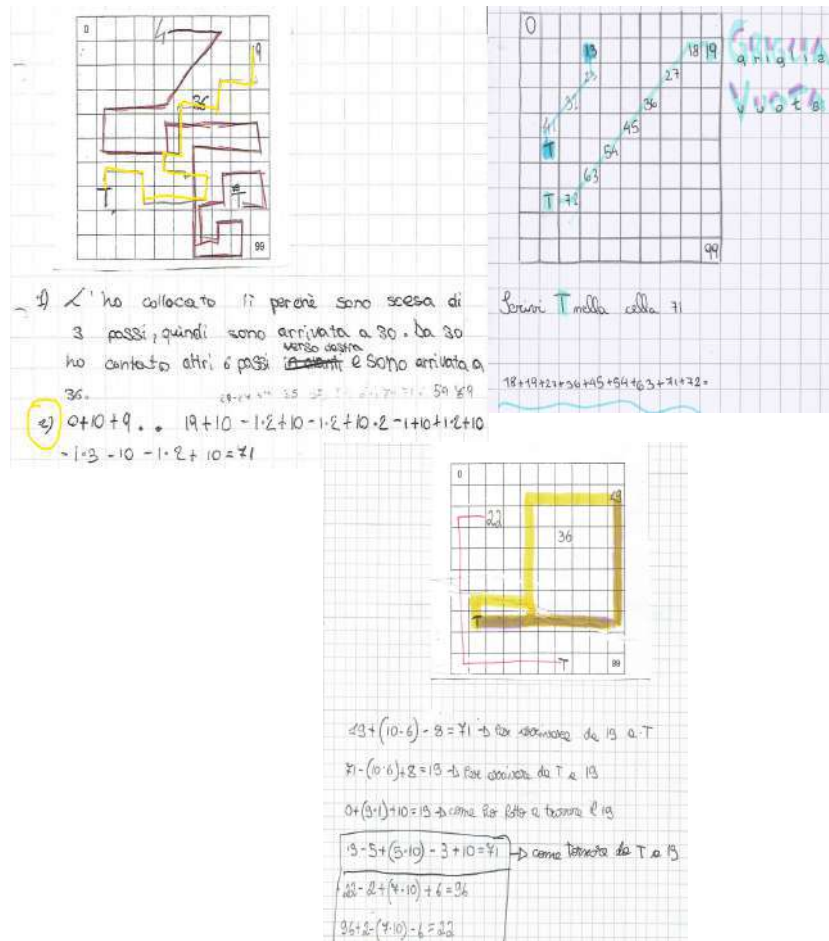 0
4
9
36
T
T
99
1) L'ho collocato lì perchè sono scesa di
3 passi, quindi sono arrivata a 30. Da 30
verso destra
ho contato altri 6 passi e sono arrivata a
36.
59 69
2) 0+10+9. . 19+10-1·2+10-1·2+10·2-1+10+1·2+10
-1·3-10-1·2+10=71
0
13
18 19
23
27
31
36
41
45
T
54
63
T 72
99
GRIGLIA
griglia
VUOTA
vuota
Scrivi T nella cella 71
18+19+27+36+45+54+63+71+72=
0
19
22
36
T
T
99
19+(10·6)-8=71 → Per arrivare da 19 a T
71-(10·6)+8=19 → Per arrivare da T a 19
0+(9·1)+10=19 → come ho fatto a trovare il 19
19-5+(5·10)-3+10=71 → come tornare da T a 19
22-2+(7·10)+6=96
96+2-(7·10)-6=22